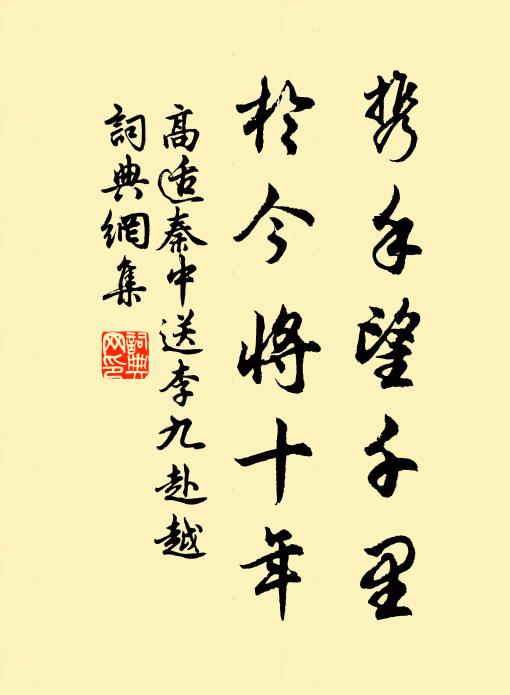 携手望千里
於今将十年
高适秦中送李九赴越
詞典網集
詞典
网印